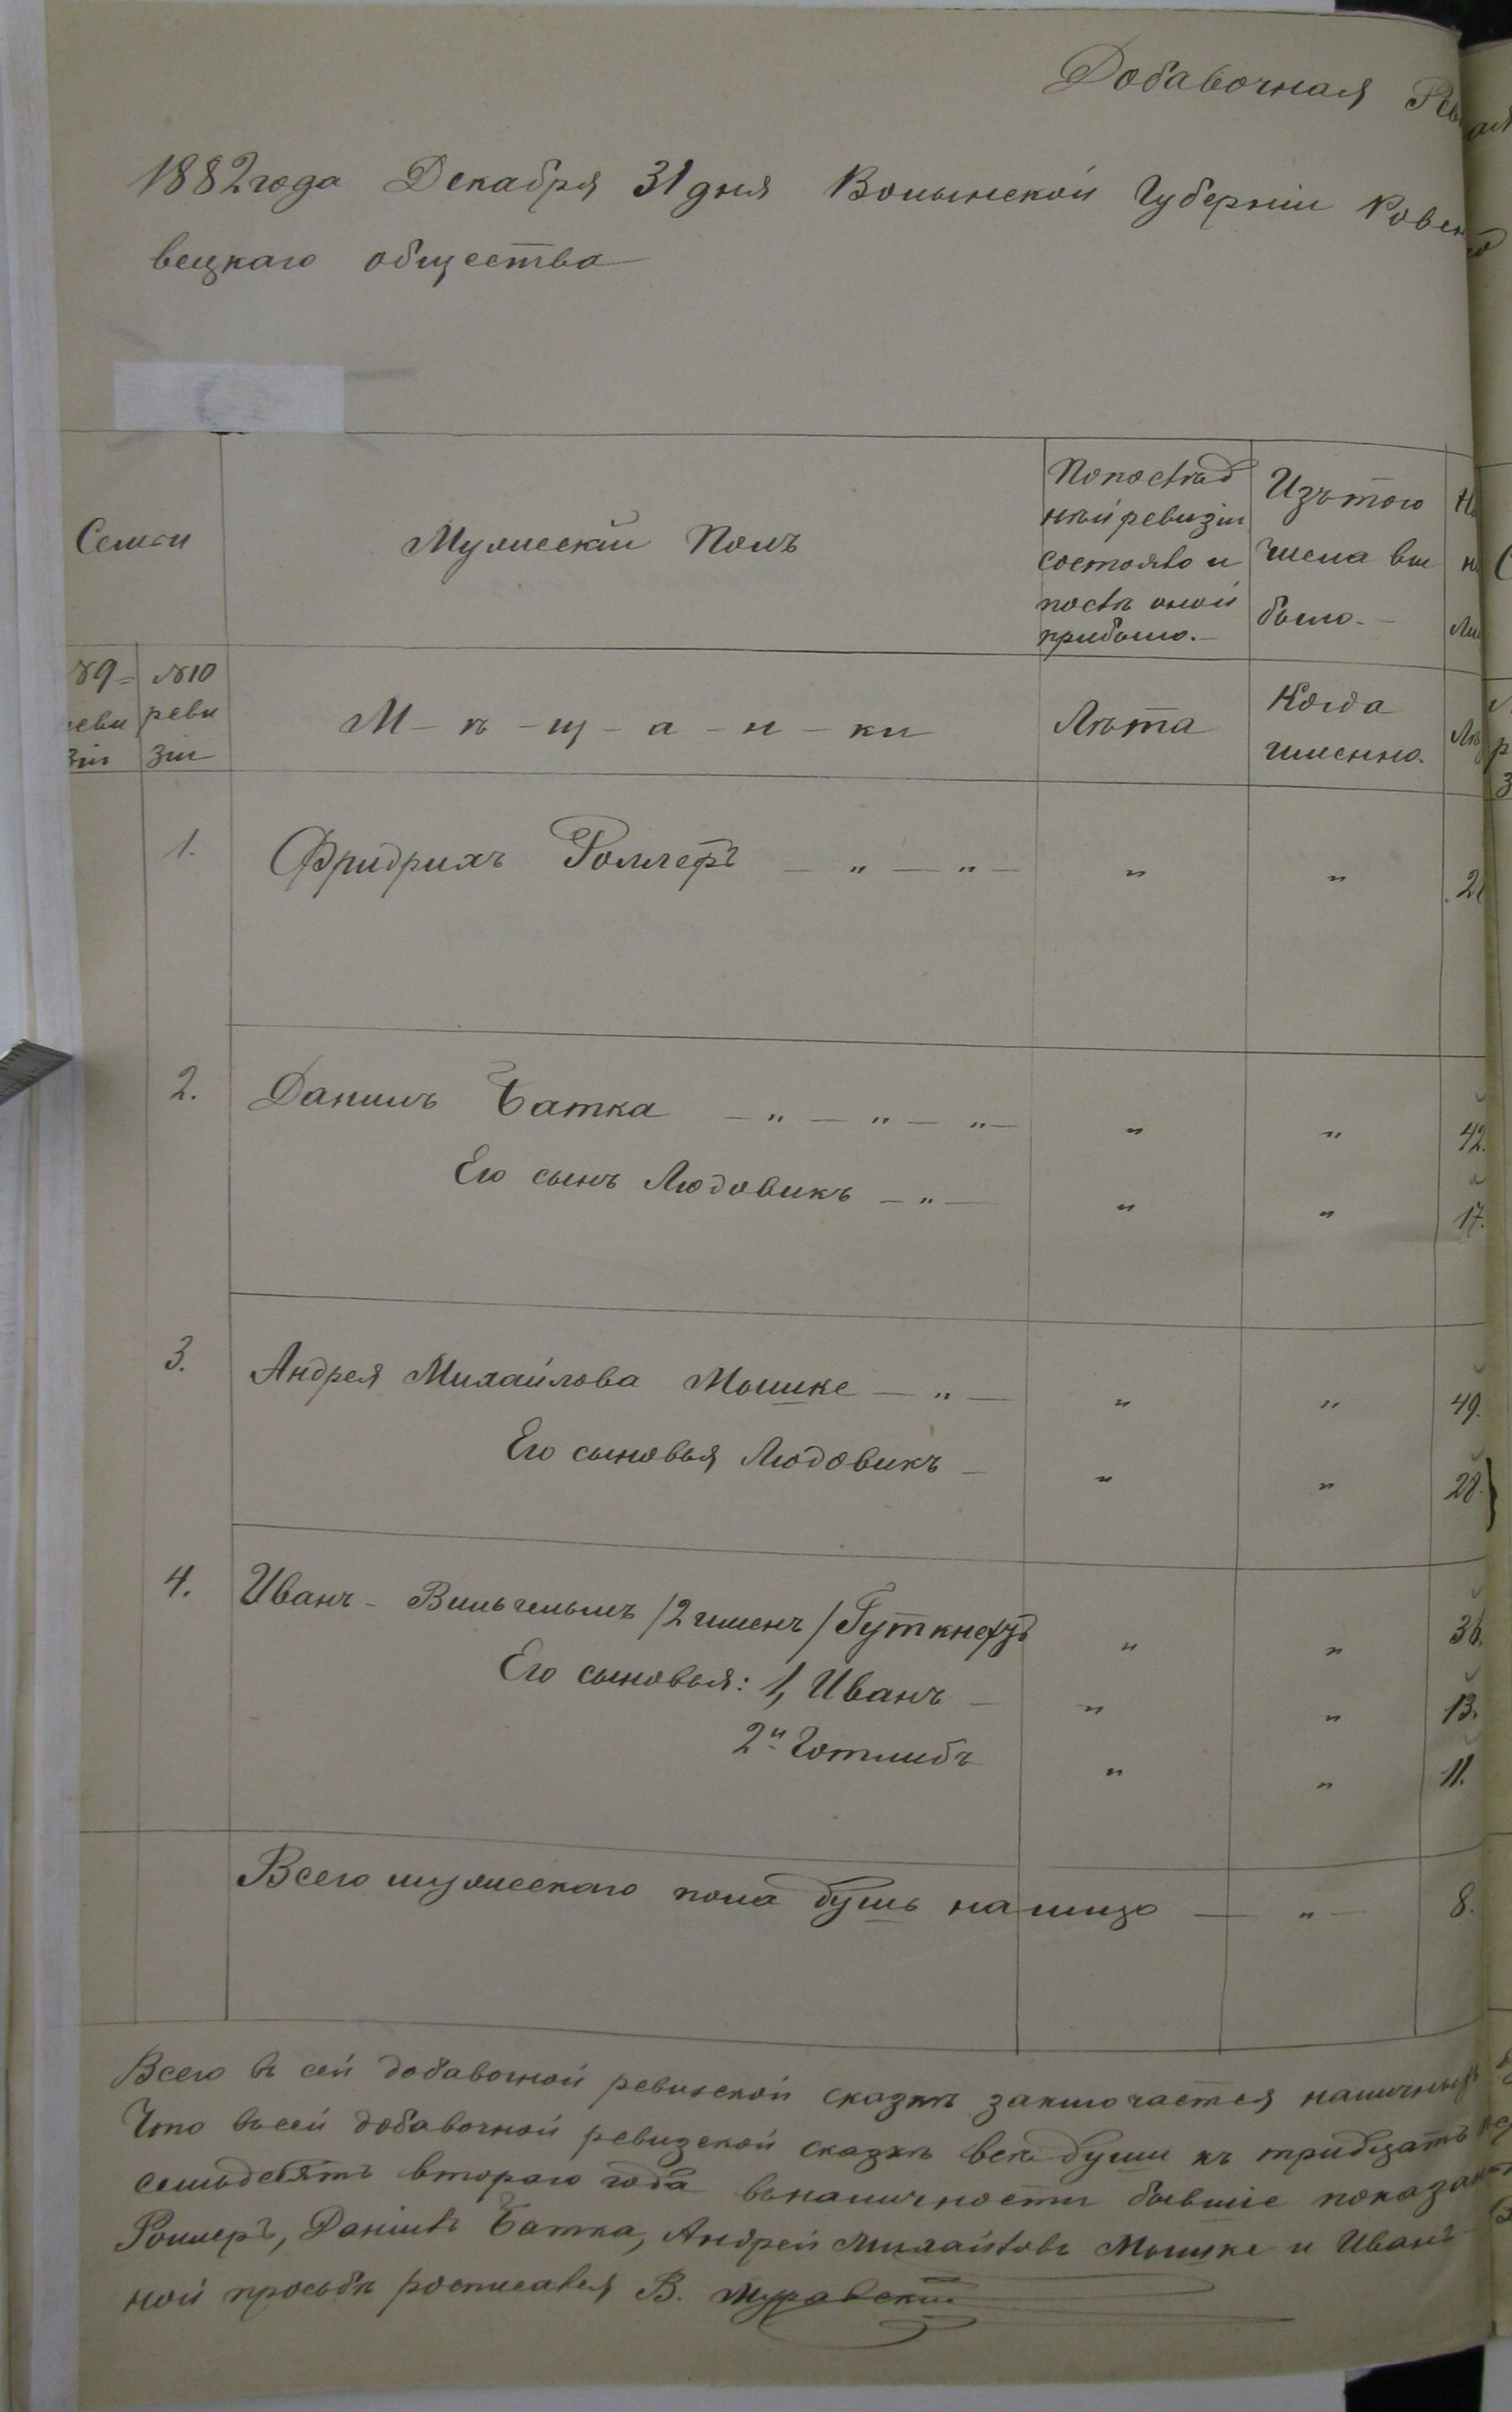 Добавочная Рев
1882 года Декабря 31 дня Волынской Губерніи Ровен
вецкаго общества
Семьи
Мужескій Полъ
По послѣд
ней ревизіи
состояло и
послѣ оной
прибыло.
Изъ того
числа вы
было.
№9
реви
зіи
№10
реви
зіи
М - ѣ - щ - а - н - ки
Лѣта
Когда
именно.
1. Фридрихъ Роллеръ — " — " — " "
2. Данилъ Батка — " — " — " — " " 42.
Его сынъ Людовикъ — " — " " 17.
3. Андрея Михайлова Мошке — " — " " 49.
Его сыновья Людовикъ — " " 28.
4. Иванъ - Вильгельмъ /2 именъ/ Гуткнехтъ " " 36.
Его сыновья: 1, Иванъ — " " 13.
2й Готлибъ " " 11.
Всего мужескаго пола душъ на лицо — " — 8.
Всего въ сей добавочной ревизской сказкѣ заключается наличныхъ
Что въ сей добавочной ревизской сказкѣ всѣ души къ тридцать
семьдесятъ втораго года въ наличности бывшіе показан
Роллеръ, Данилъ Батка, Андрей Михайловъ Мошке и Иванъ
ной просьбѣ росписался В. Муравскій